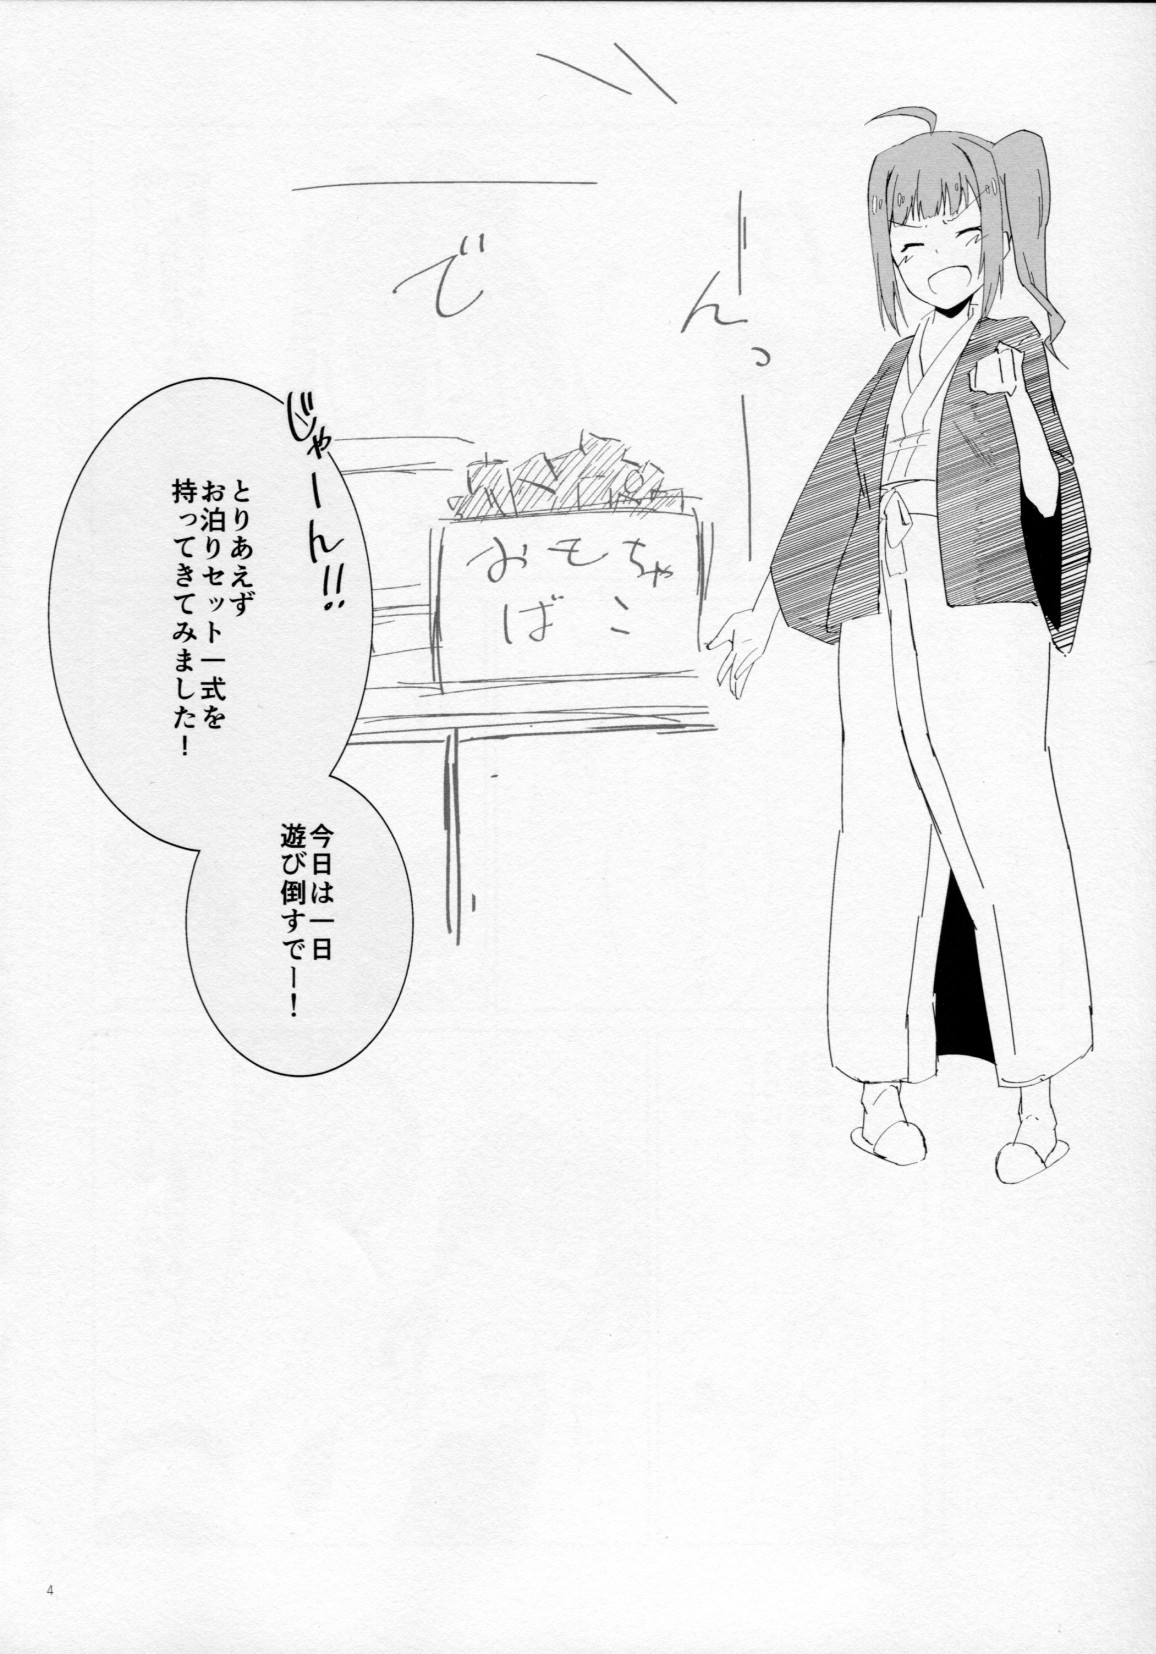 でーーんっ
じゃーん!!
とりあえず
お泊りセット一式を
持ってきてみました!
今日は一日
遊び倒すでー!
おもちゃ
ばこ
4